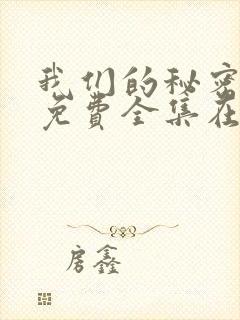 我们的秘密
免费全集在
房鑫